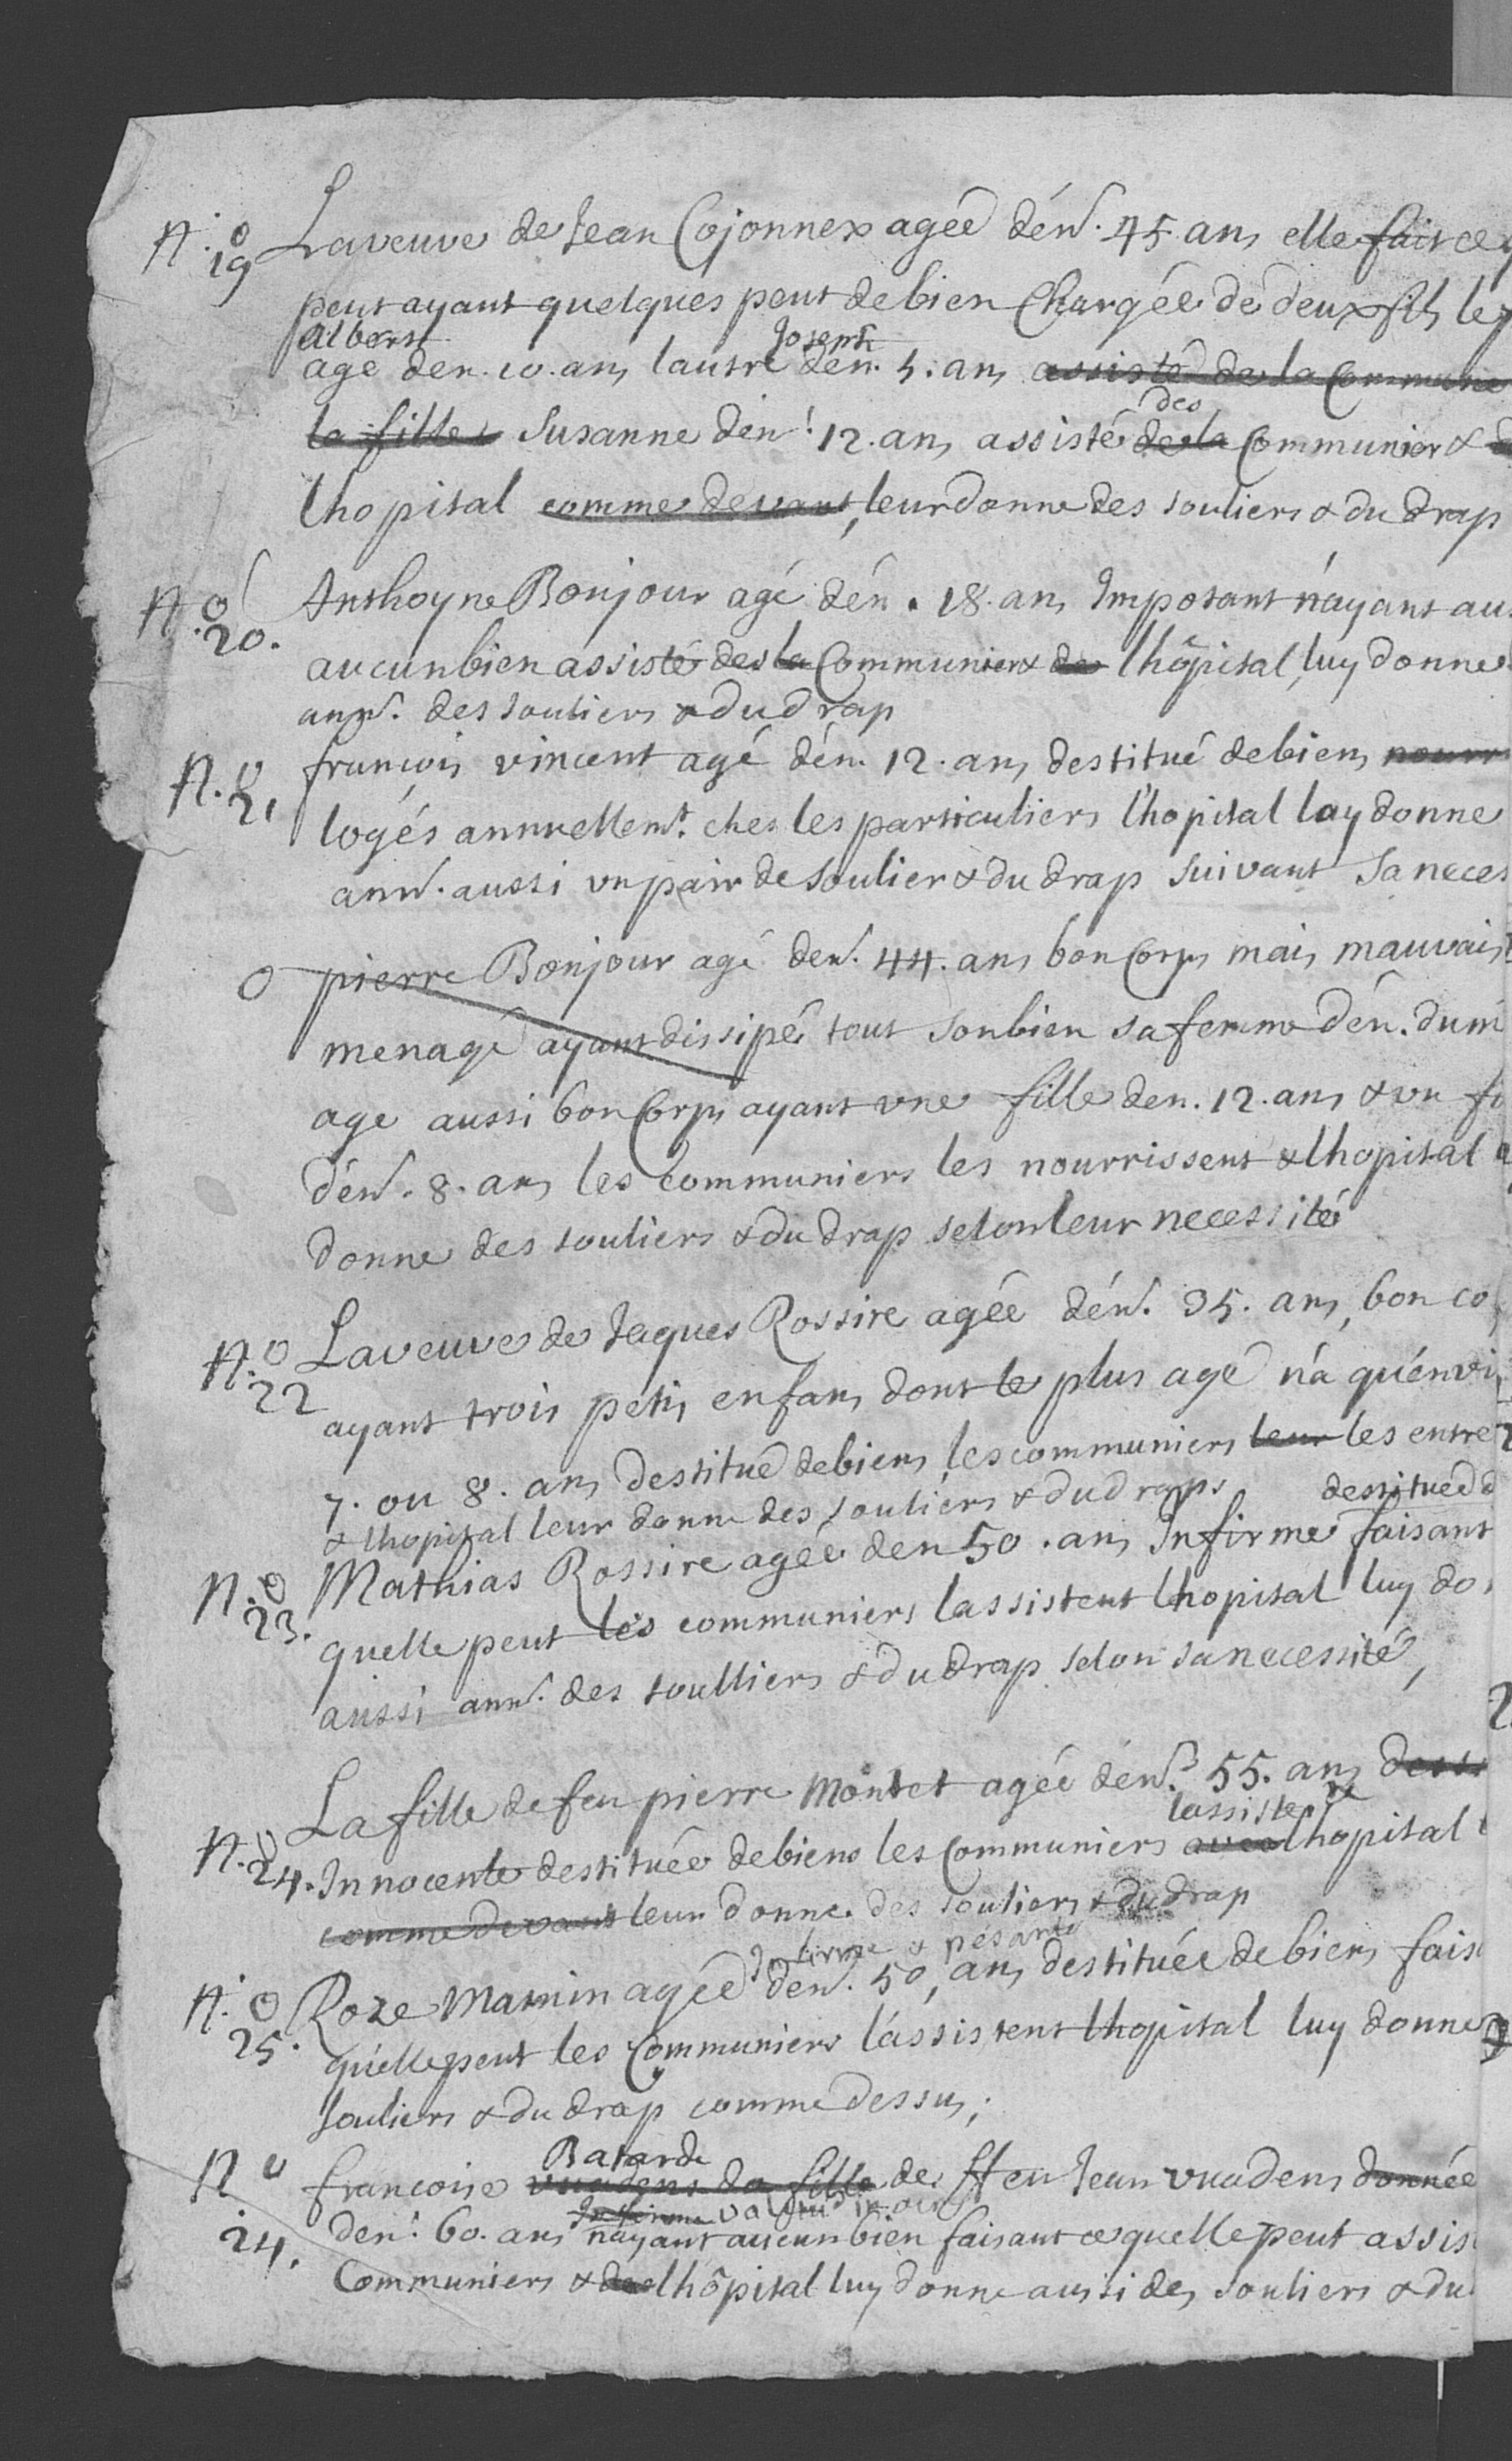 N.o 19 La veuve de Jean Cojonnex agée dén. 45 ans elle fait ce
peut ayant quelques peut de bien Chargée de deux fils le
Albert Joseph
age den. 10. ans lautre den. 5. ans assisté de la Commune
la fille Susanne dén! 12. ans assisté de la des Communier &
lhopital comme devant, leur donne des souliers & du drap
N.o 20. Anthoyne Bonjour agé dén. 18. ans Impotant n'ayant au
aucun bien assisté des la Communiers & de lhôpital, luy donne
ann. des souliers & du drap
N.o 21 françois vincent agé dén. 12. ans destitué de biens nourr
logés annuellemt. ches les particuliers l'hopital luy donne
ann. aussi un pair de soulier & du drap suivant sa neces
o pierre Bonjour agé den. 44. ans bon Corps mais mauvais
menagé ayant dissipé tout son bien sa femme dén. du m
age aussi bon Corps ayant une fille den. 12. ans & un fi
dén. 8. ans les communiers les nourrissent & lhopital
donne des souliers & du drap selon leur necessité
N.o 22 La veuve de Jaques Rossire agée dén. 35. ans, bon co
ayant trois petis enfans dont le plus agé n'a qu'envi
7. ou 8. ans destitué de biens les communiers leur les entre
& lhopital leur donne des souliers & du draps destituée d
N.o 23. Mathias Rossire agée den 50. ans Infirme faisant
quelle peut les communiers lassistent lhopital luy do
aussi ann. des soulliers & du drap selon sa necessité,
La fille de feu pierre Montet agée dén. 55. ans dest
lassiste
N.o 24. Innocente destituée de biens les Communiers avec lhopital
comme devant leur donne. des souliers & du drap
Infirme & pésante
N.o 25. Roze Mamin agée den. 50, ans destituée de biens fais
qu'elle peut les Communiers l'assistent lhopital luy donne
souliers & du drap comme dessus;
Batarde
No 24. francoise vuadens da fille de ffeu Jean vuadens donnée
Infirme
den. 60. ans nayant aucun bien faisant ce quelle peut assis
Communiers & de lhôpital luy donne aussi des souliers & du